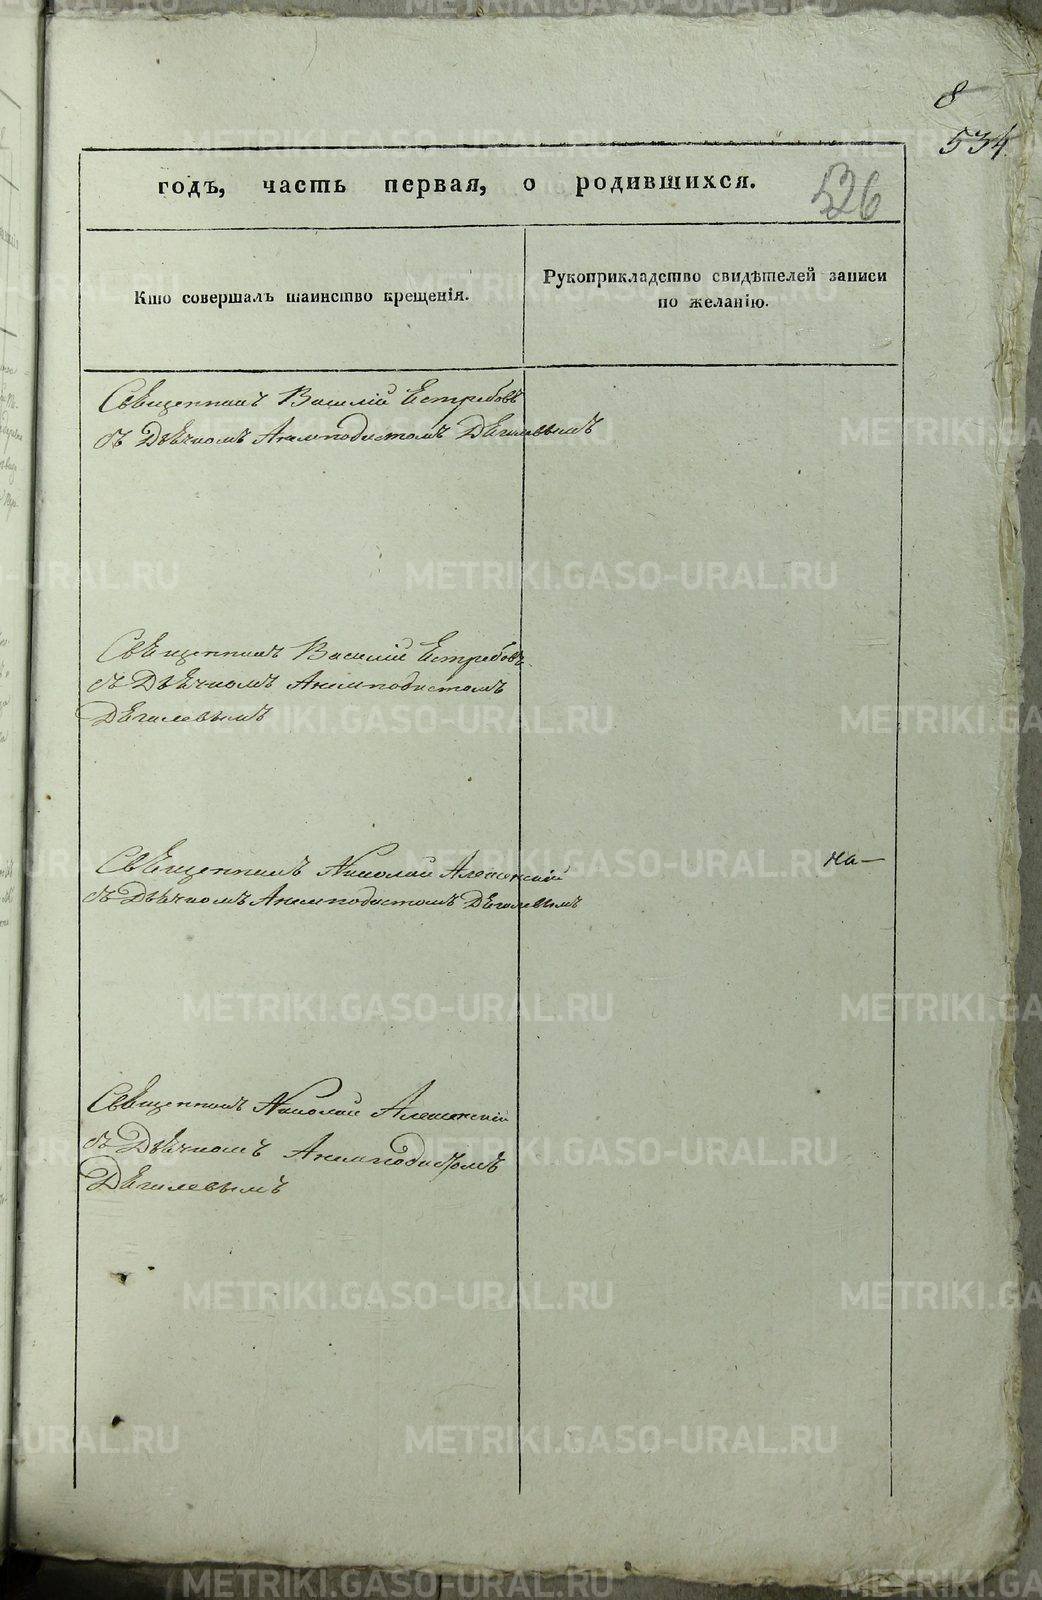 8
534
526
годъ, часть первая, о родившихся.
Кто совершалъ таинство крещенія.
Рукоприкладство свидѣтелей записи
по желанію.
Священникъ Василій Ястребовъ
съ Дьячкомъ Анемподистомъ Дягилевымъ
Священникъ Василій Ястребовъ
съ Дьячкомъ Анемподистомъ
Дягилевымъ
Священникъ Николай
съ Дьячкомъ Анемподистомъ Дягилевымъ
на-
Священникъ Николай
съ Дьячкомъ Анемподистомъ
Дягилевымъ
METRIKI.GASO-URAL.RU